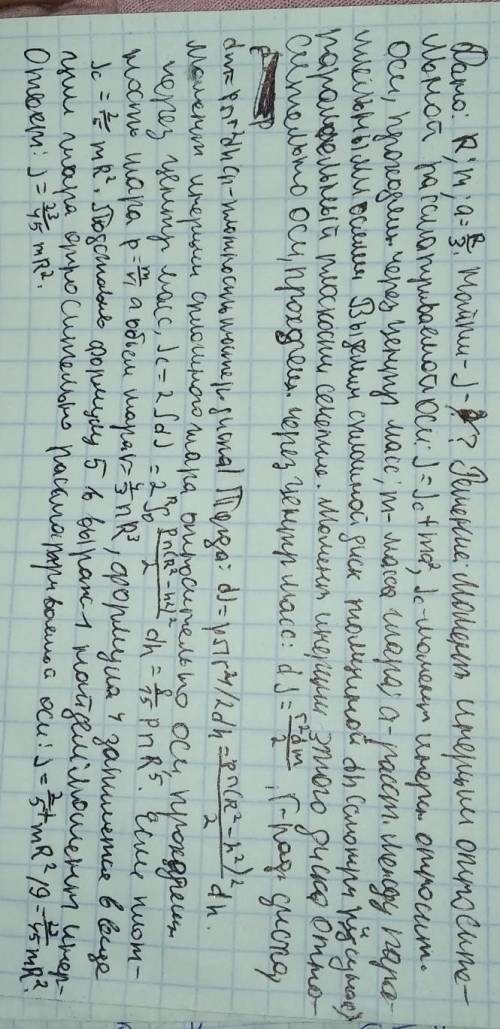 Дано: R; m; a = R/3. Найти - J - ? Решение: Момент инерции относите-
льной рассматриваемой оси: J = Jc + ma², Jc - момент инерц. относит.
оси, проходящ. через центр масс; m - масса шара; a - расст. между парал-
лельными осями. Выделим сплошной диск толщиной dh (смотри рисунок)
параллельный плоскости сечение. Момент инерции этого диска отно-
сительно оси, проходящ. через центр масс: dJ = r²dm/2, r - рад. диска,
dm = ρπr²dh (ρ - плотность матер. диска) Тогда: dJ = ρπr⁴/2dh = ρπ(R²-h²)²/2 dh.
Момент инерции сплошного шара относительно оси, проходящ.
через центр масс, Jc = 2∫dJ = 2∫₀ᴿ ρπ(R²-h²)²/2 dh = 8/15 ρπR⁵. Если плот-
ность шара ρ = m/V, а объем шара V = 4/3 πR³, формула 4 запишется в виде
Jc = 2/5 mR². Подставив формулу 5 в выраж 1 найдем: момент инер-
ции шара относительно рассматриваемой оси: J = 2/5 + mR²/9 = 23/45 mR².
Ответ: J = 23/45 mR².